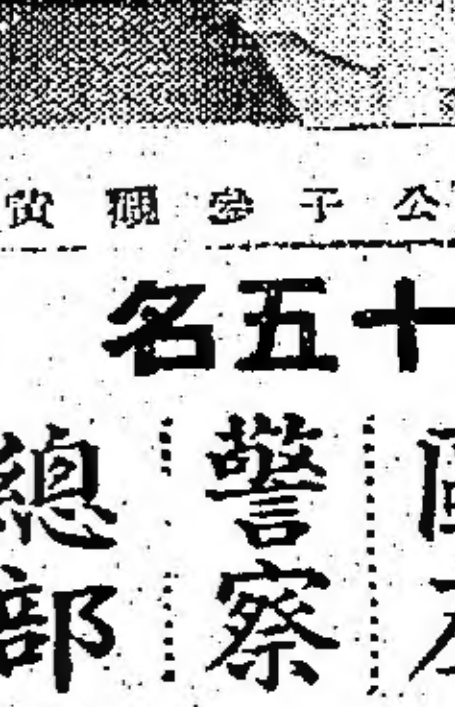 公子參觀
十五名
警察
總部